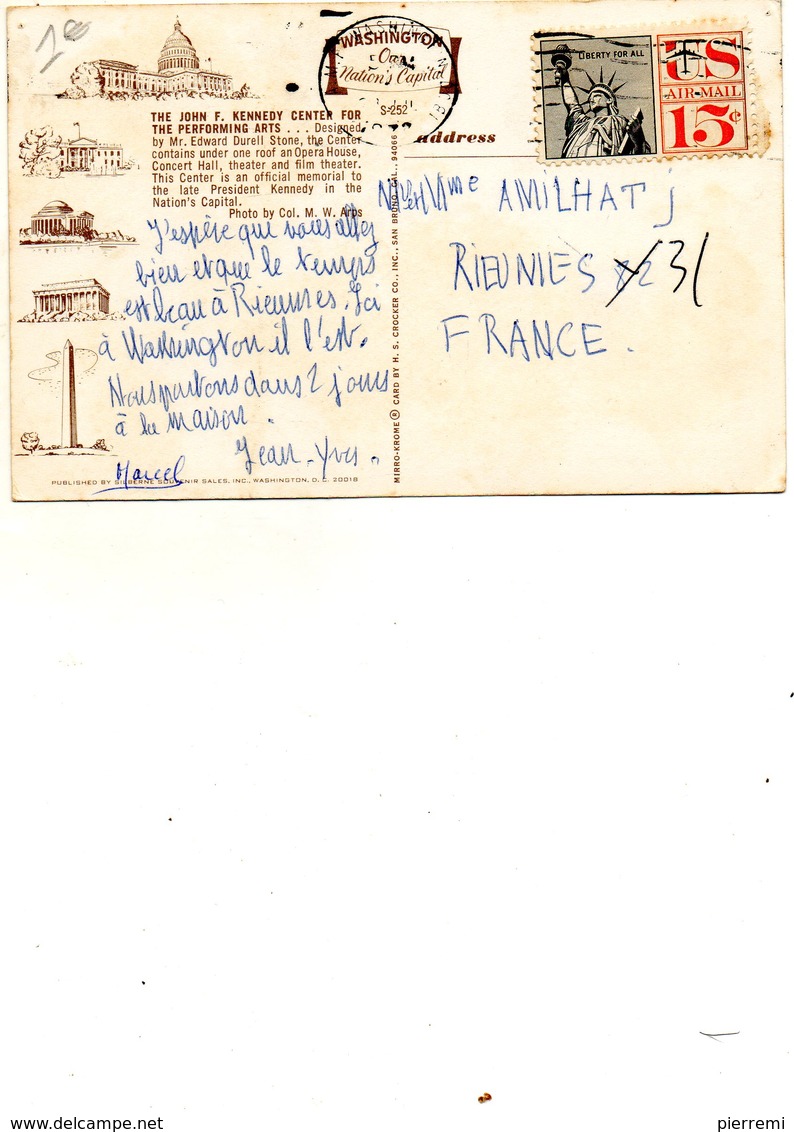 100
WASHINGTON
Our
Nation's Capital
S-252
address
LIBERTY FOR ALL
US
AIR·MAIL
15¢
THE JOHN F. KENNEDY CENTER FOR
THE PERFORMING ARTS . . . Designed
by Mr. Edward Durell Stone, the Center
contains under one roof an Opera House,
Concert Hall, theater and film theater.
This Center is an official memorial to
the late President Kennedy in the
Nation's Capital.
Photo by Col. M. W. Arps
J'espère que vous allez
bien et que le temps
est beau à Rieumes. Ici
à Washington il l'est.
Nous partons dans 2 jours
à la maison.
Jean-Yves.
Marcel
PUBLISHED BY SILBERNE SOUVENIR SALES, INC., WASHINGTON, D. C. 20018
MIRRO-KROME ® CARD BY H. S. CROCKER CO., INC., SAN BRUNO, CAL. 94066
Mr et Mme AMILHAT j
RIEUMES 31
FRANCE.
www.delcampe.net
pierremi